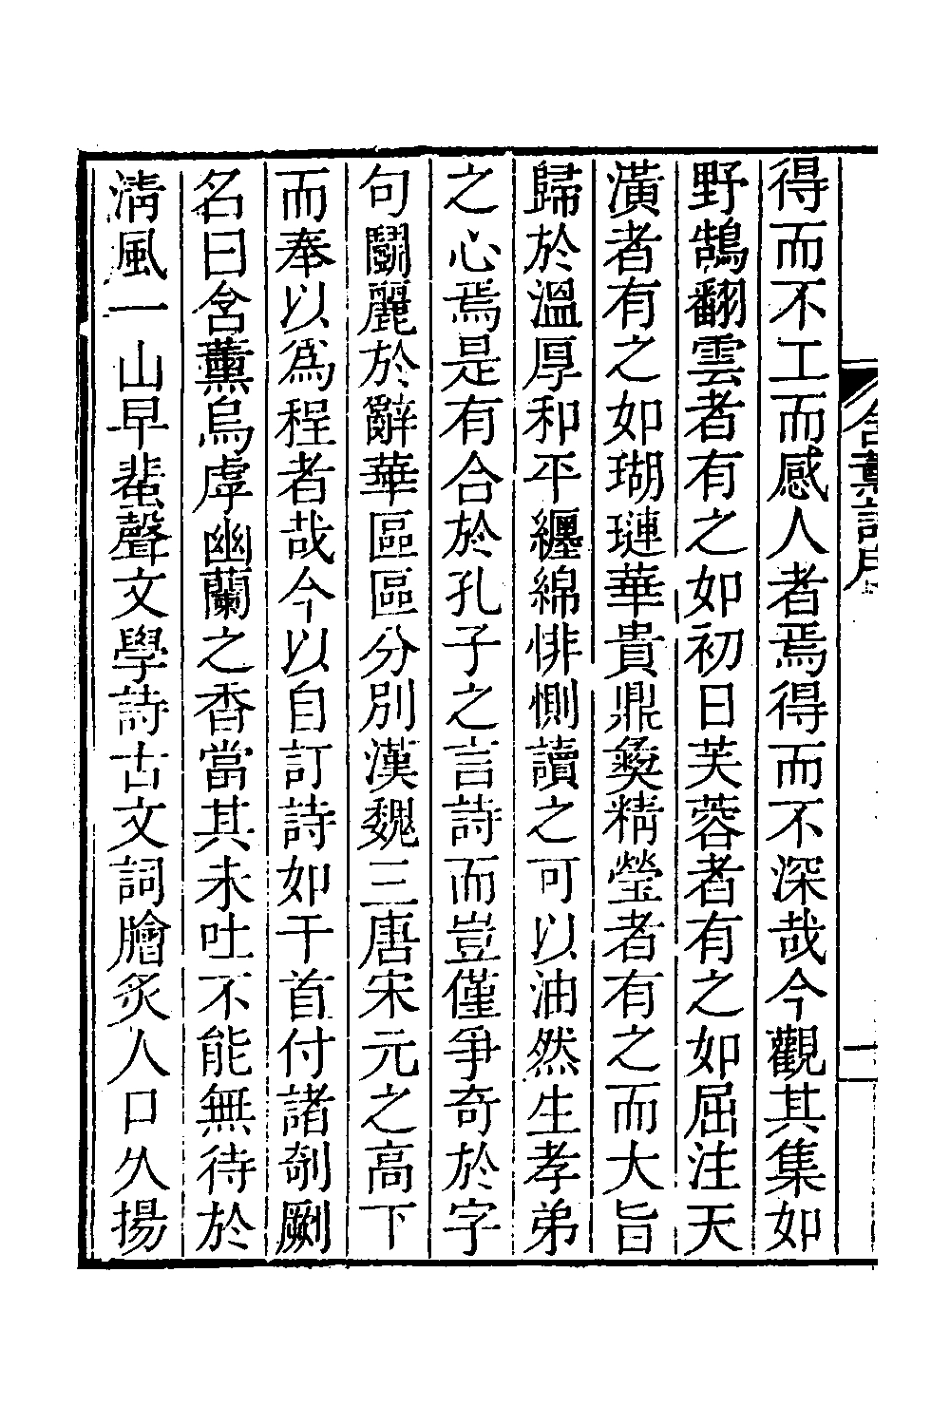 含薰詩序
一
得而不工而感人者焉得而不深哉今觀其集如
野鵠翻雲者有之如初日芙蓉者有之如屈注天
潢者有之如瑚璉華貴鼎彝精瑩者有之而大旨
歸於溫厚和平纏綿悱惻讀之可以油然生孝弟
之心焉是有合於孔子之言詩而豈僅爭奇於字
句鬬麗於辭華區區分別漢魏三唐宋元之高下
而奉以爲程者哉今以自訂詩如干首付諸剞劂
名曰含薰烏虖幽蘭之香當其未吐不能無待於
淸風一山早蜚聲文學詩古文詞膾炙人口久揚